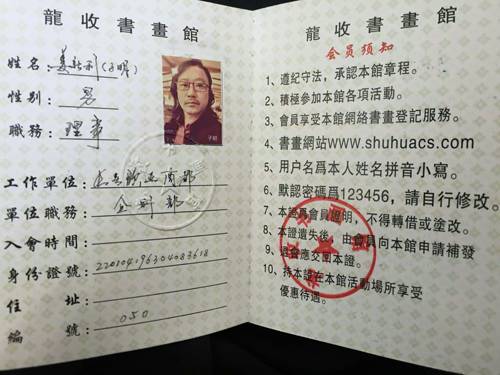 龍收書畫館
姓名：姜新利(子明)
性别：男
職務：理事
工作單位：
單位職務：企划部
入會時間：
身份證號：
住 址：
編 號：050
子明
龍收書畫館
会员须知
1、遵紀守法，承認本館章程。
2、積極參加本館各項活動。
3、會員享受本館網絡書畫登記服務。
4、書畫網站www.shuhuacs.com
5、用户名爲本人姓名拼音小寫。
6、默認密碼爲123456，請自行修改。
7、本證爲會員證明，不得轉借或塗改。
8、本證遺失後，由會員向本館申請補發
9、退會應交圍本證。
10、持本證在本館活動場所享受
優惠待遇。